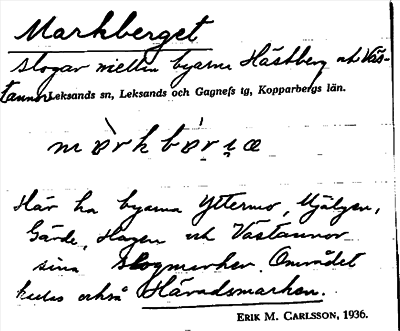 Markberget
skogar mellan byarna Hästberg och Väs-
tannor Leksands sn, Leksands och Gagnefs tg, Kopparbergs län.
Här ha byarna Yttermo, Hjälpen,
Gärde, Hagen och Västannor
sina skogmarker. Området
kallas också Häradsmarken.
ERIK M. CARLSSON, 1936.